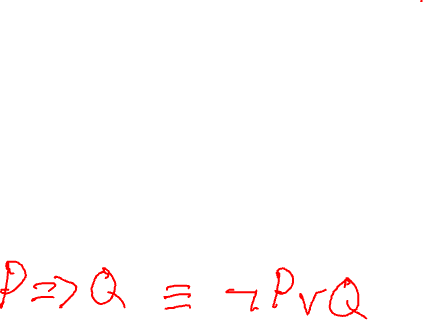 P => Q ≡ ¬P ∨ Q